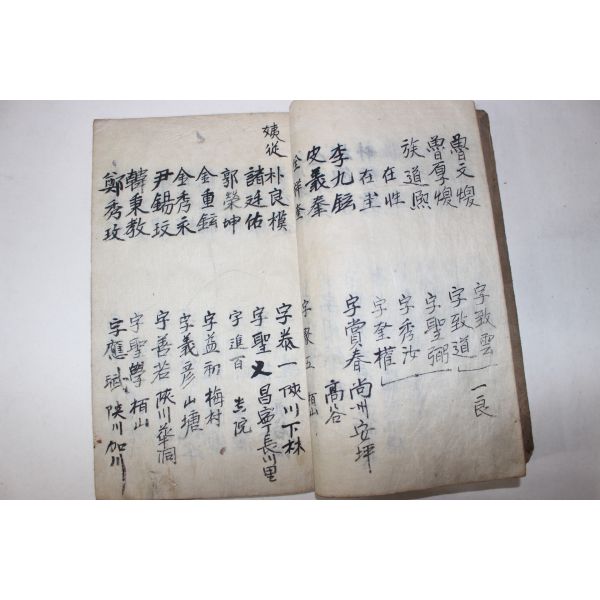 魯文煥 字致雲
魯厚煥 字致道 一良
族道熙 字聖弼
在性 字秀汝
在 字奎權
李九鉉 字賞春 尚州安坪
史義奉 高谷
字 五 栢山
姨從 朴良模 字 一 陜川下林
諸廷佑 字聖文 昌寧長川里
郭榮坤 字進百 院
金重鉉 字益和 梅村
金秀永 字義彦 山塘
尹錫玟 字善若 陜川華洞
韓秉教 字聖學 栢山
鄭秀玟 字應斌 陜川加川